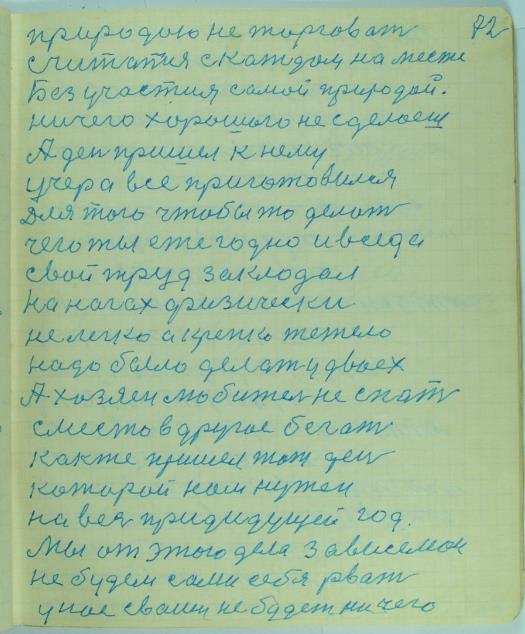 72
природою не торговат
считатия скаждом на месте
Без участия самой природой.
ничего хорошого не сделаеш
А ден пришел к нему
учера всё приготовился
Для того чтобы то делат
чего ты ежегодно и всегда
свой труд закладал
на ногах физически
не легко а крепко тежело
надо было делат у двоех
А хозяен любител не спат
сместо в другое бегат
как же пришел тот ден
которой нам нужен
на вея придидущей год.
Мы от этого дела зависемои
не будем сами себя рват
у нас свами не будет ничего